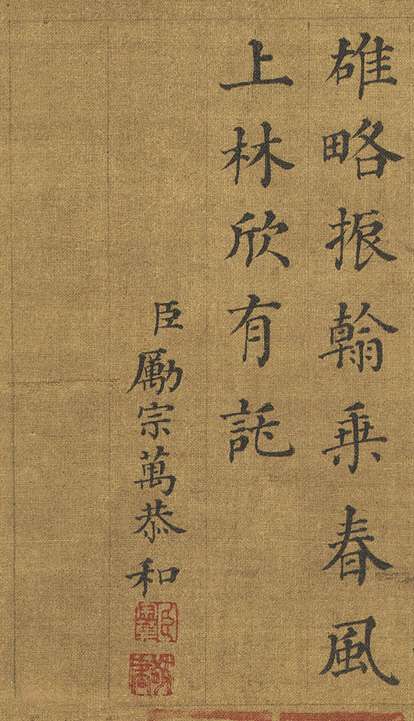 雄略振翰乗春風
上林欣有託
臣勵宗萬恭和